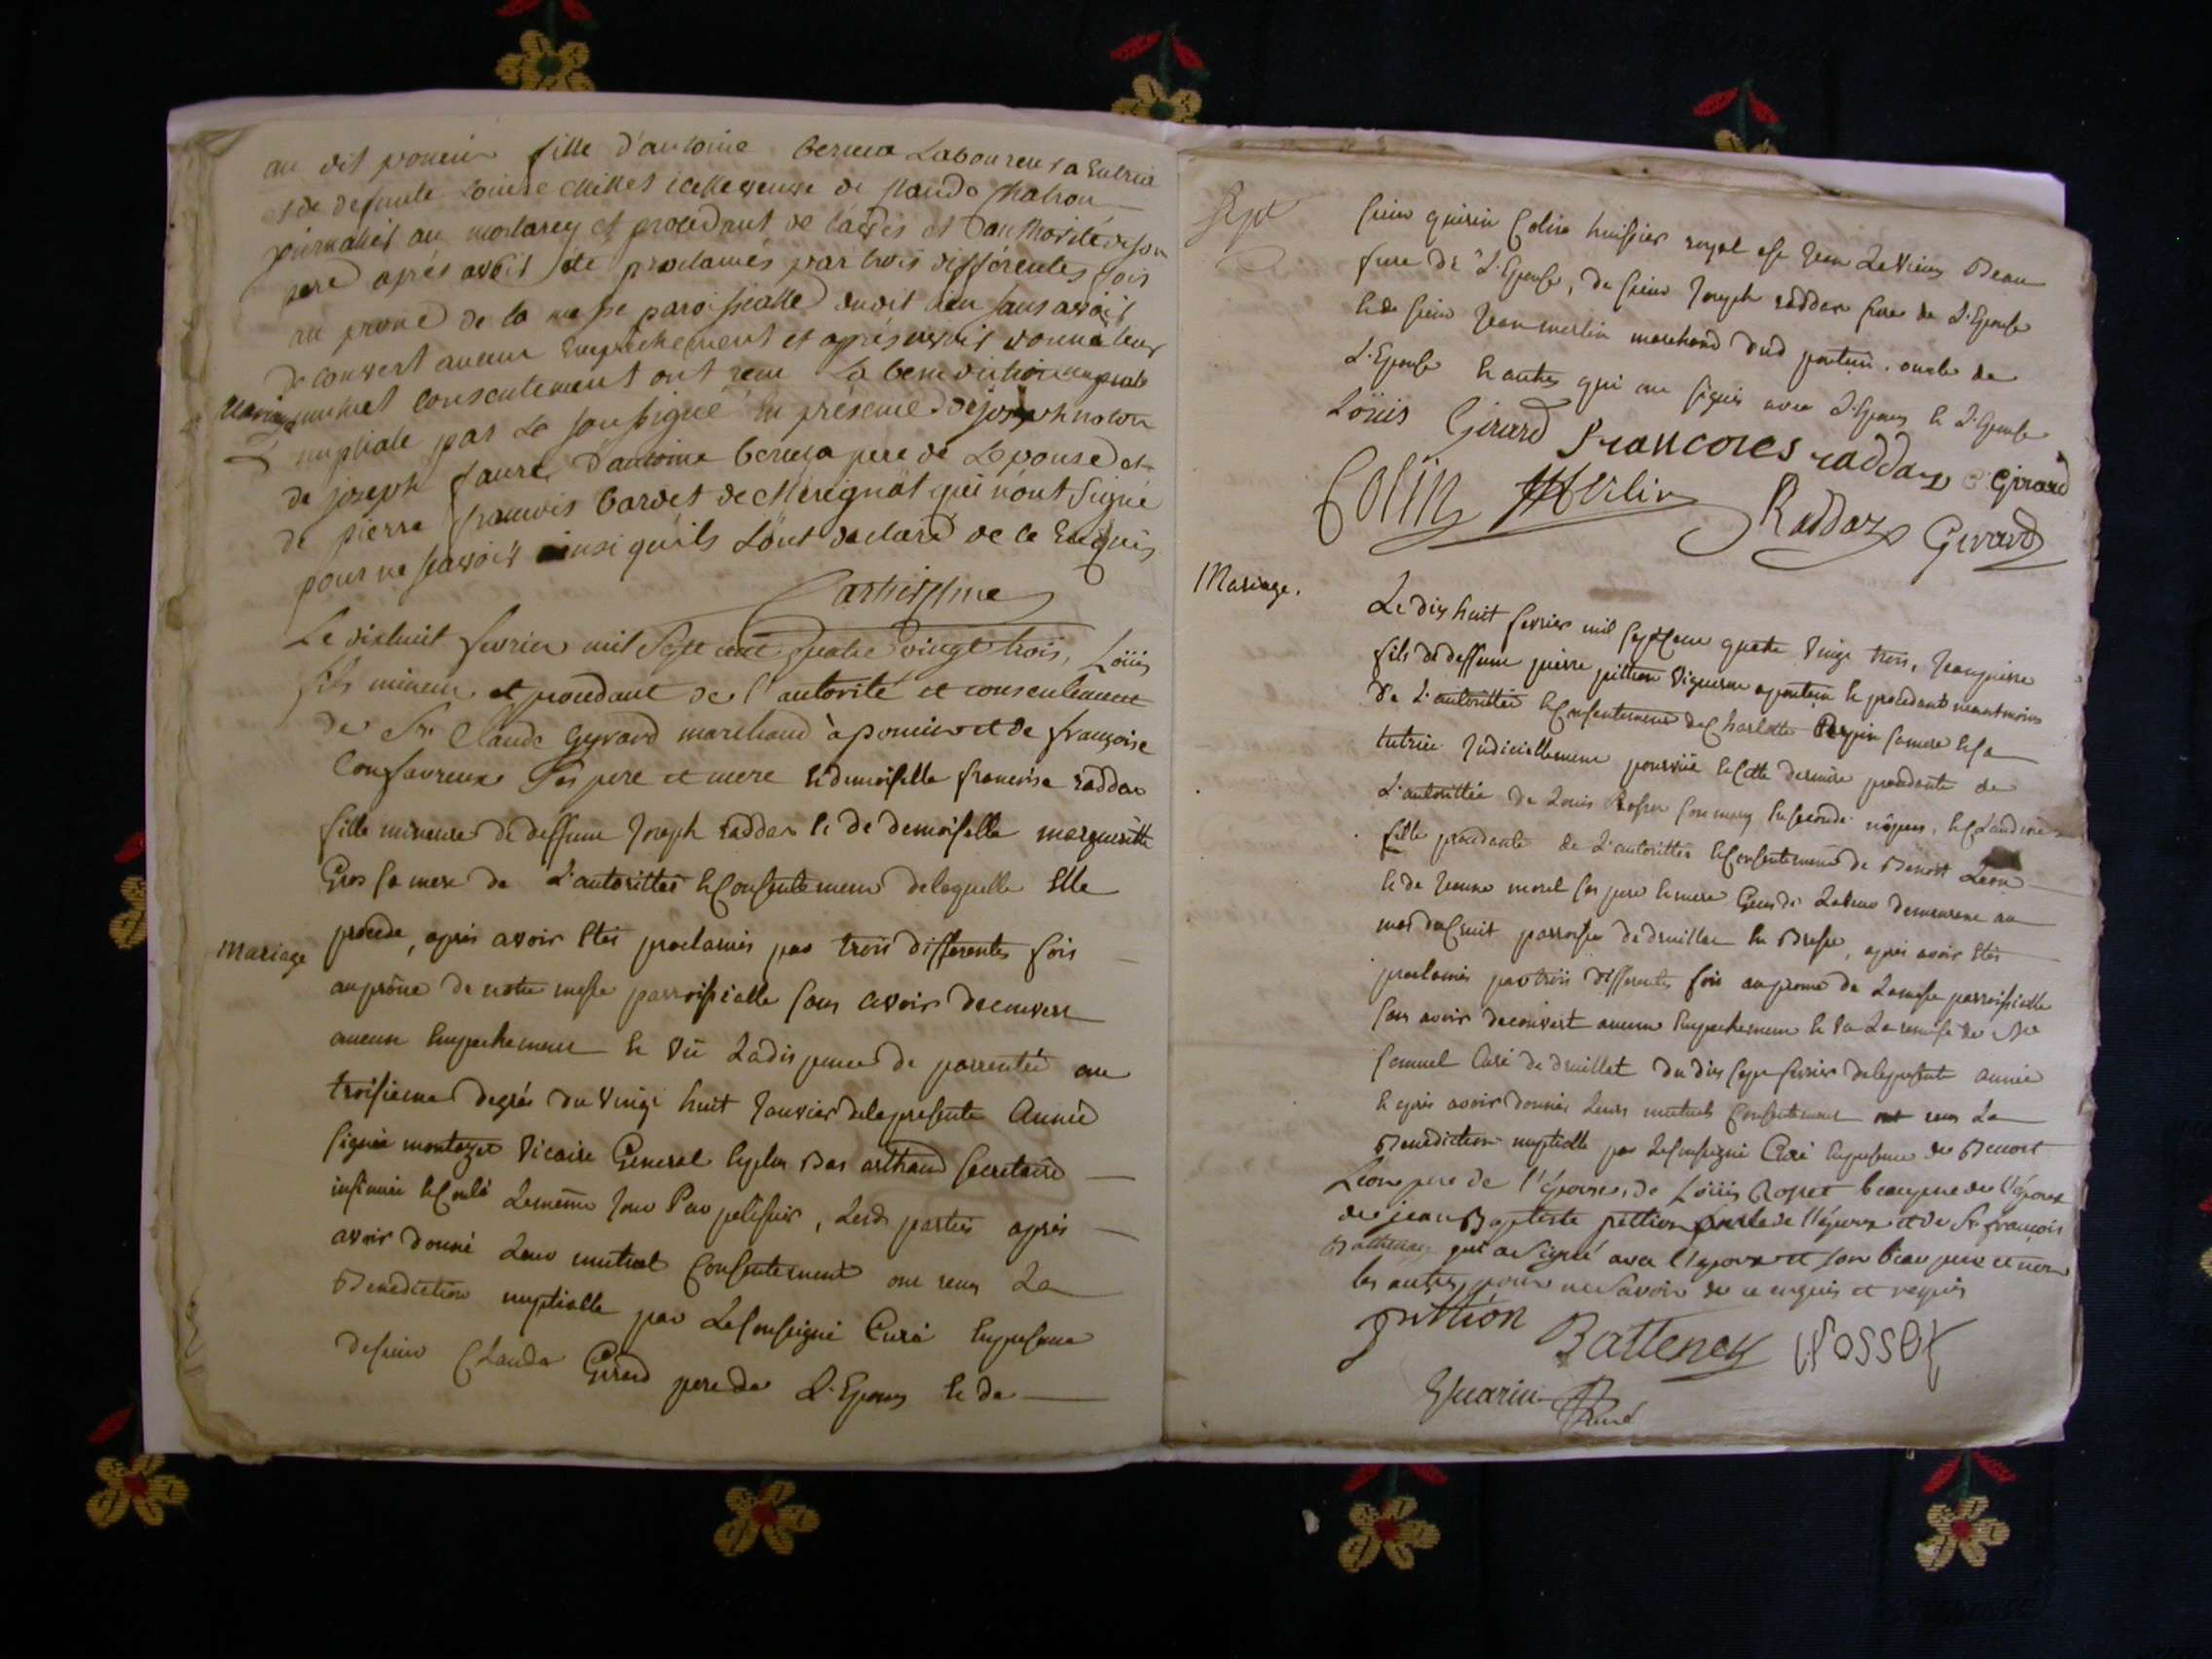 au dit poncin fille d'antoine berum Laboureur a Entria
et de defunte Louise Millet icelle veuve de Claude Chatron
journalier au mortarey et procedant de l'advis et D'authorité de son
pere aprés avoit été proclamés par trois différentes fois
au prone de la messe paroissialle du dit lieu sans avoit
decouvert aucun Empechement et aprés avoit donné leur
Mariage mutuel consentement ont recu La benediction nuptiale
nuptiale par Le soussigné En présence de joseph
de joseph faure, D'antoine pere de L'epouse et
de pierre francois bardet de Merignat qui n'ont signé
pour ne scavoir ainsi qu'ils L'ont declaré de ce Enquis
Le dixhuit fevrier mil Sept cent quatre vingt trois, Loüis
fils mineur et procedant de l'autorité et consentement
de Sr. Claude Gyrard marchand à poncin et de françoise
Confavreux Ses pere et mere Et demoiselle francoise raddax
fille mineure de deffunt Joseph raddax Et de demoiselle margueritte
Gros sa mere de L'autorittée Et Consentement de laquelle Elle
Mariage procede, aprés avoir Etés proclamés par trois differentes fois
au prône de notre messe parroissialle sans avoir decouvert
aucun Empechement Et Vû La dispense de parrentée au
troisieme degrés du Vingt huit Janvier de la presente Année
signée montazet Vicaire General Et plus Bas arthaud secretaire
insinuée Et Controlé Le même Jour Par pelissier, Lesd. parties aprés
avoir donné Leur mutuel Consentement ont reçu La
Benediction nuptialle par Le soussigné Curé En presence
de sieur Claude Girard pere de L'Epoux Et de
Sept
sieur guerin Colin huissier royal et Jean Beau
frere de L'Epouse, de sieur Joseph raddax frere de L'Epouse
Et de sieur Jean merlin marchand dud poncin. oncle de
L'Epouse Et autres qui ont signés avec L'Epoux Et L'Epouse
Loüis Girard francoies raddaz C Girard
Colin Merlin Raddaz Gerard
Mariage.
Le dix huit fevrier mil sept Cent quatre Vingt trois, Jean pierre
fils de deffunt pierre pittion Vigneron a poncin Et procedant neantmoins
de L'autorittée Et Consentement de Charlotte sa mere Et sa
tutrice Judiciellement pourvüe Et Cette derniere procedante de
L'autorittée de Louis Rosset son mary En seconde nôpces, Et Claudine
fille procedante de L'autorittée Et Consentement de Benoit Leon
Et de Jeanne morel ses pere Et mere Gens de Labeur demeurant au
mas parroisse de druillat En Bresse, aprés avoir Etés
proclamés par trois differentes fois au prone de La messe parroissialle
sans avoir decouvert aucun Empechement Et Vu La remise de Mr
Samuel Curé de druillat du dix sept fevrier de la presente année
Et aprés avoir donnés Leurs mutuels Consentement ont reçu La
Benediction nuptialle par Le soussigné Curé En presence de Benoit
Leon pere de l'épouse, de Loüis Rosset beau pere de l'époux
de jean Baptiste pittion oncle de l'époux et de Sr. françois
Battenay qui a signé avec l'epoux et son beau pere et non
les autres pour ne savoir de ce enquis et requis
pittion Battenay
Guarin Curé